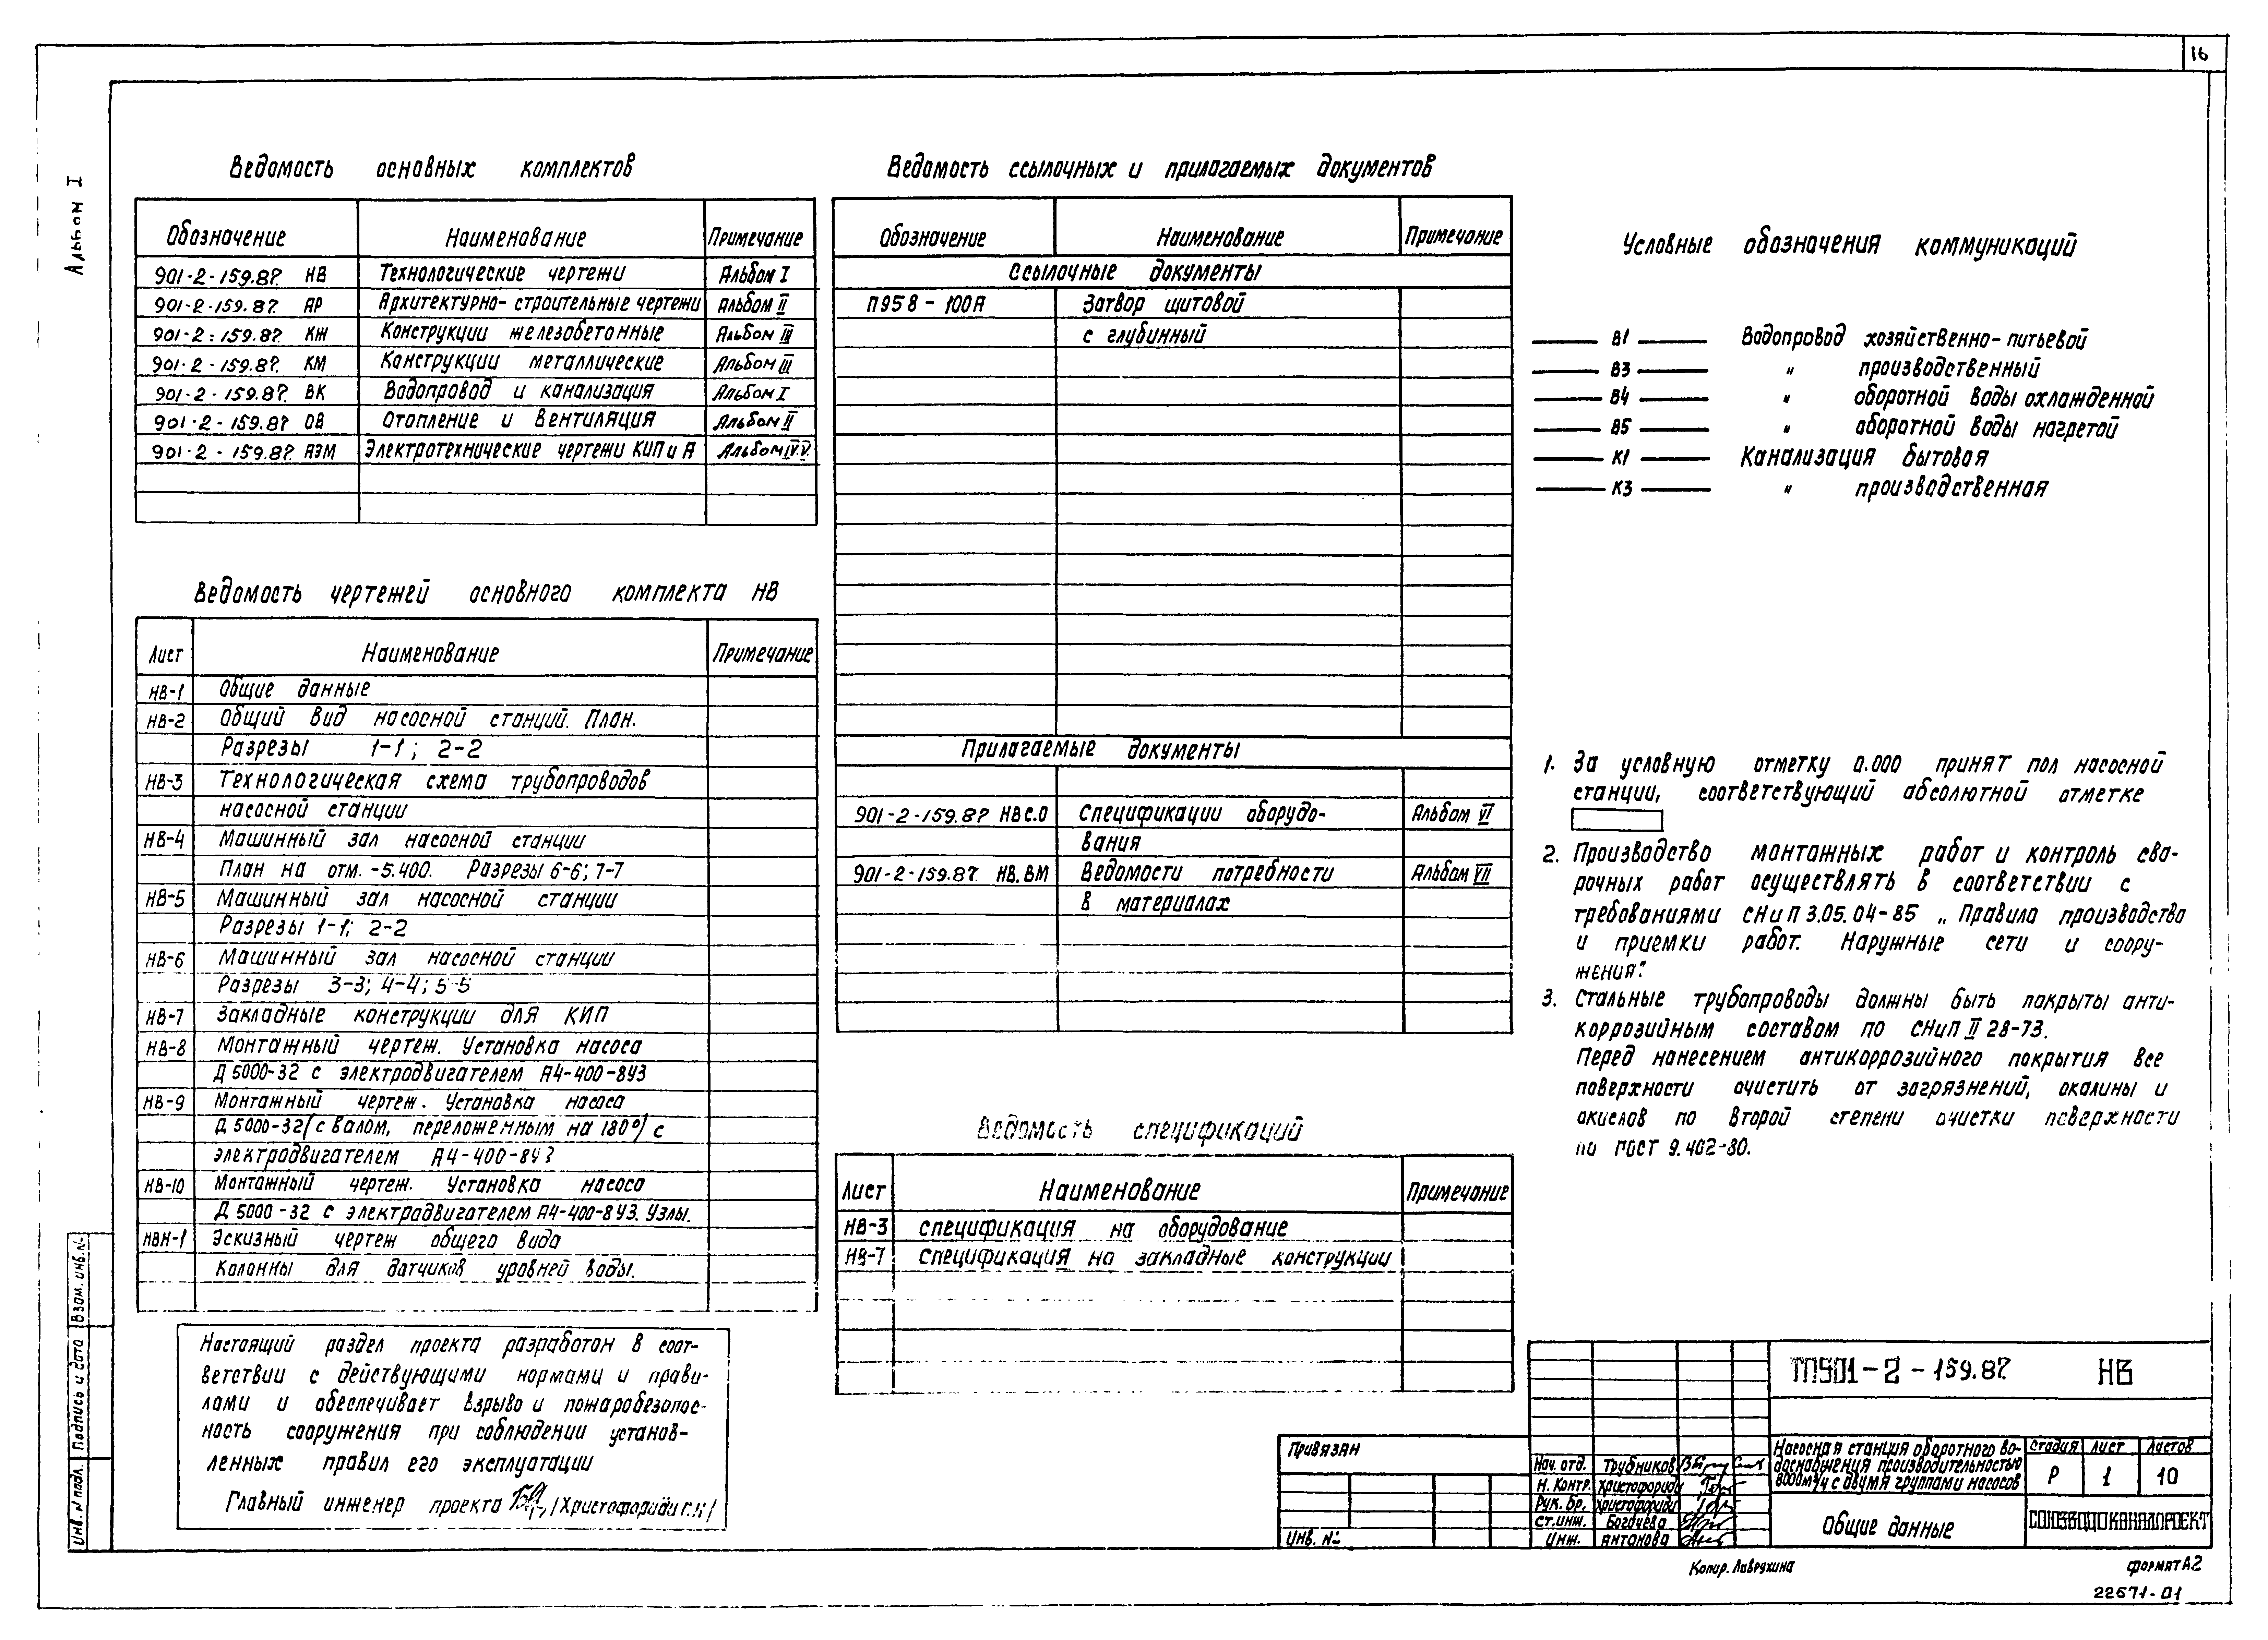 16
Альбом I
Ведомость основных комплектов
Обозначение Наименование Примечание
901-2-159.87. НВ Технологические чертежи Альбом I
901-2-159.87. АР Архитектурно-строительные чертежи Альбом II
901-2-159.87. КЖ Конструкции железобетонные Альбом III
901-2-159.87. КМ Конструкции металлические Альбом III
901-2-159.87. ВК Водопровод и канализация Альбом I
901-2-159.87 ОВ Отопление и вентиляция Альбом II
901-2-159.87. АЭМ Электротехнические чертежи КИП и А Альбом IV.V.
Ведомость чертежей основного комплекта НВ
Лист Наименование Примечание
НВ-1 Общие данные
НВ-2 Общий вид насосной станций. План.
Разрезы 1-1; 2-2
НВ-3 Технологическая схема трубопроводов
насосной станции
НВ-4 Машинный зал насосной станции
План на отм. -5.400. Разрезы 6-6; 7-7
НВ-5 Машинный зал насосной станции
Разрезы 1-1; 2-2
НВ-6 Машинный зал насосной станции
Разрезы 3-3; 4-4; 5-5
НВ-7 Закладные конструкции для КИП
НВ-8 Монтажный чертеж. Установка насоса
Д 5000-32 с электродвигателем А4-400-8У3
НВ-9 Монтажный чертеж. Установка насоса
Д 5000-32 (с валом, переложенным на 180°) с
электродвигателем А4-400-8У3
НВ-10 Монтажный чертеж. Установка насоса
Д 5000-32 с электродвигателем А4-400-8У3. Узлы.
НВН-1 Эскизный чертеж общего вида
колонны для датчиков уровней воды.
Настоящий раздел проекта разработан в соот-
ветствии с действующими нормами и прави-
лами и обеспечивает взрыво и пожаробезопас-
ность сооружения при соблюдении установ-
ленных правил его эксплуатации
Главный инженер проекта /Христофориди Г.К/
Ведомость ссылочных и прилагаемых документов
Обозначение Наименование Примечание
Ссылочные документы
П958-100А Затвор щитовой
с глубинный
Прилагаемые документы
901-2-159.87 НВ С.О Спецификации оборудо- Альбом VI
вания
901-2-159.87. НВ. ВМ Ведомости потребности Альбом VII
в материалах
Ведомость спецификаций
Лист Наименование Примечание
НВ-3 Спецификация на оборудование
НВ-7 Спецификация на закладные конструкции
Условные обозначения коммуникаций
В1 Водопровод хозяйственно-питьевой
В3 " производственный
В4 " оборотной воды охлажденной
В5 " оборотной воды нагретой
К1 Канализация бытовая
К3 " производственная
1. За условную отметку 0.000 принят пол насосной
станции, соответствующий абсолютной отметке
2. Производство монтажных работ и контроль сва-
рочных работ осуществлять в соответствии с
требованиями СНиП 3.05.04-85 „Правила производства
и приемки работ. Наружные сети и соору-
жения".
3. Стальные трубопроводы должны быть покрыты анти-
коррозийным составом по СНиП II 28-73.
Перед нанесением антикоррозийного покрытия все
поверхности очистить от загрязнений, окалины и
окислов по второй степени очистки поверхности
по ГОСТ 9.402-80.
ТП901-2-159.87. НВ
Насосная станция оборотного во-
доснабжения производительностью
8000м³/ч с двумя группами насосов
Стадия Лист Листов
Р 1 10
Общие данные
СОЮЗВОДОКАНАЛПРОЕКТ
Нач. отд. Трубников
Н. Контр. Христофориди
Рук. бр. Христофориди
Ст. инж. Богачева
Инж. Антонова
Привязан
Инв. №
Взам. инв. №
Подпись и дата
Инв. № подл.
Копир. Лаврухина
Формат А2
22671-01